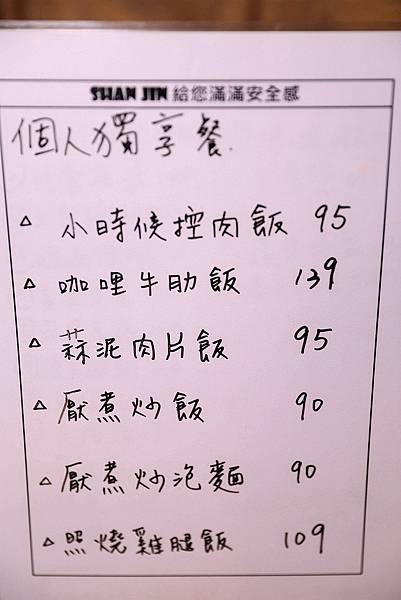 SHAN JIN 給您滿滿安全感
個人獨享餐.
△ 小時候控肉飯 95
△ 咖哩牛肋飯 139
△ 蒜泥肉片飯 95
△ 厭煮炒飯 90
△ 厭煮炒泡麵 90
△ 照燒雞腿飯 109